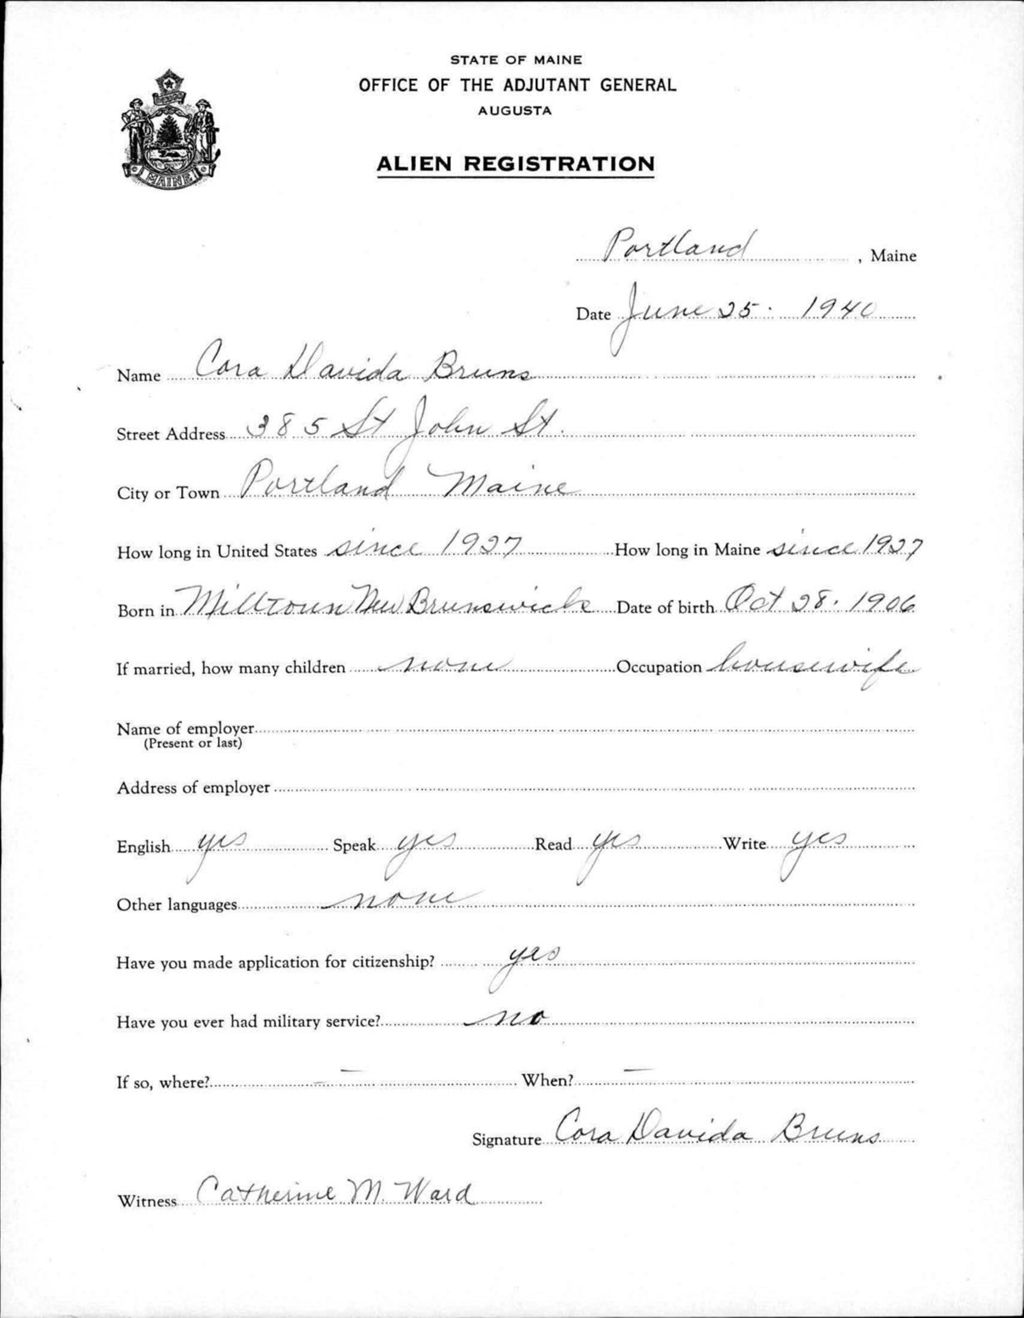 STATE OF MAINE
OFFICE OF THE ADJUTANT GENERAL
AUGUSTA
ALIEN REGISTRATION
MAINE
Portland, Maine
Date June 25. 1940
Name Cora Davida Bruns
Street Address 385 St John St.
City or Town Portland Maine
How long in United States since 1927 How long in Maine since 1927
Born in Milltown New Brunswick Date of birth Oct 28. 1906
If married, how many children none Occupation housewife
Name of employer
(Present or last)
Address of employer
English yes Speak yes Read yes Write yes
Other languages none
Have you made application for citizenship? yes
Have you ever had military service? no
If so, where? — When? —
Signature Cora Davida Bruns
Witness Catherine M. Ward